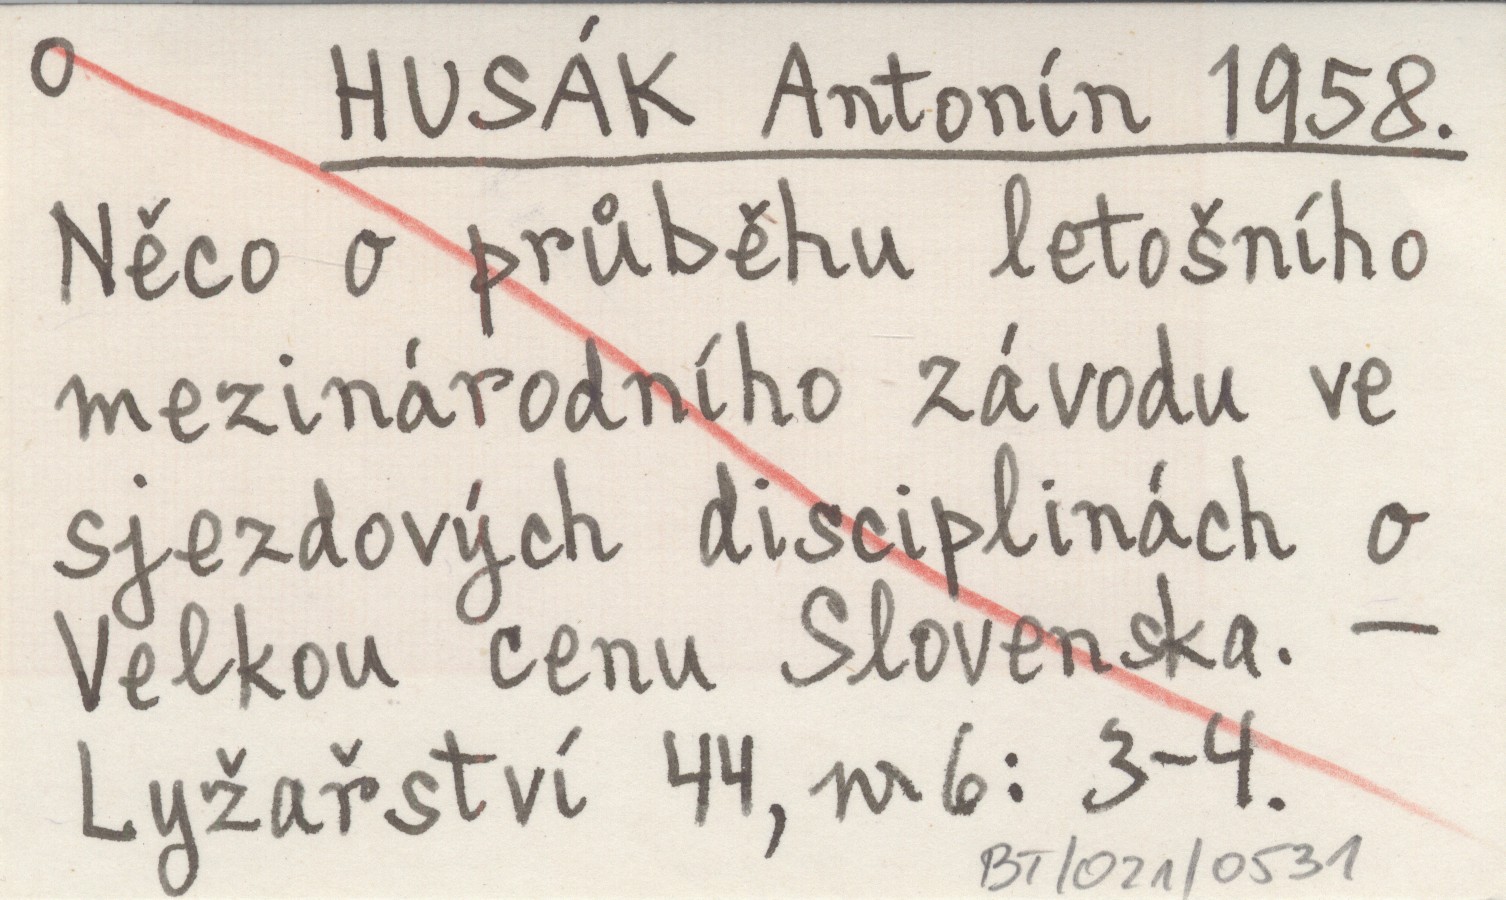 o HUSÁK Antonín 1958.
Něco o průběhu letošního
mezinárodního závodu ve
sjezdových disciplinách o
Velkou cenu Slovenska. —
Lyžařství 44, nr 6: 3-4.
BT/021/0531